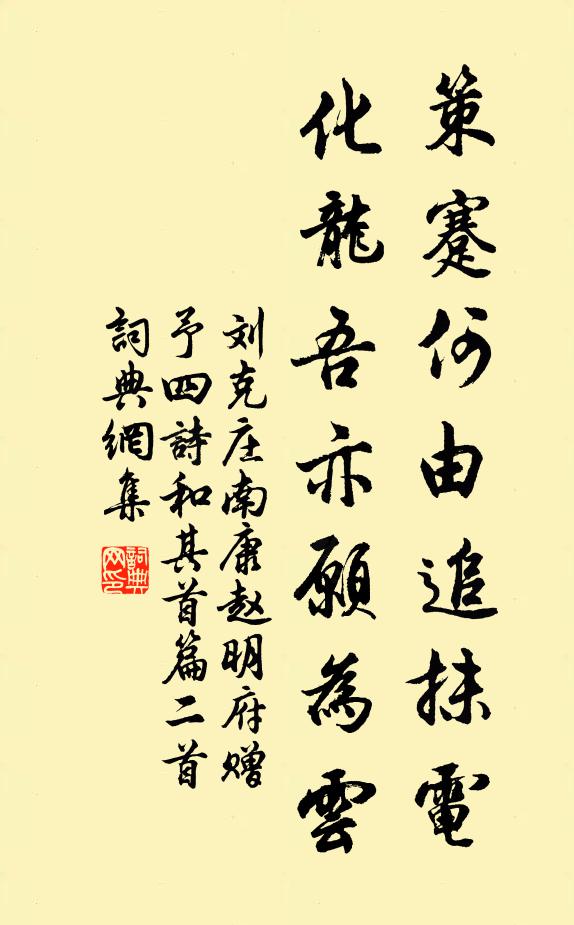 策蹇何由追抹電
化龍吾亦願為雲
刘克庄南康赵明府赠
予四詩和其首篇二首
詞典網集
詞典
网印